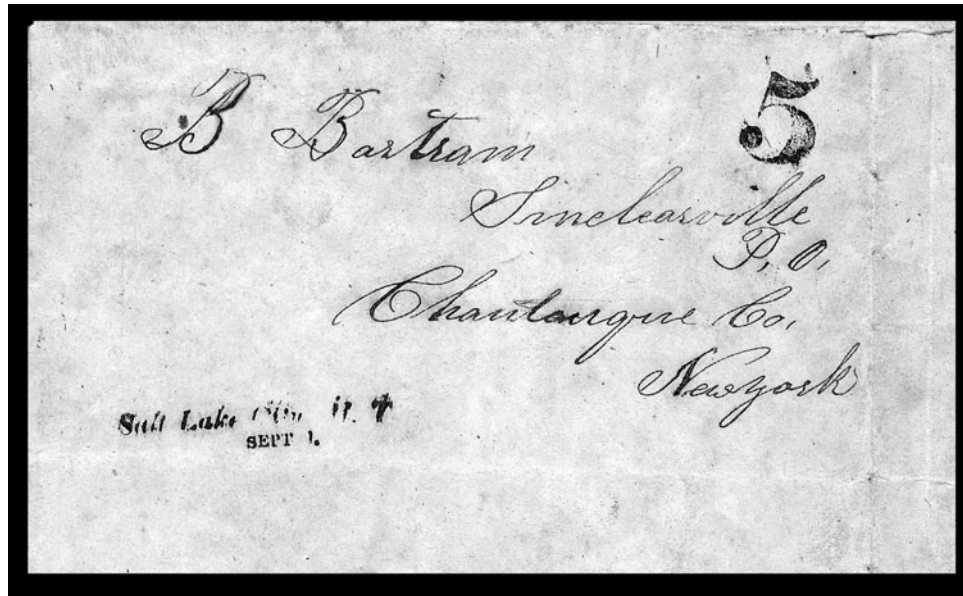 5
B Bartram
Sinclearville
P. O.
Chautauque Co.
New york
Salt Lake City, U. T
SEPT 1.